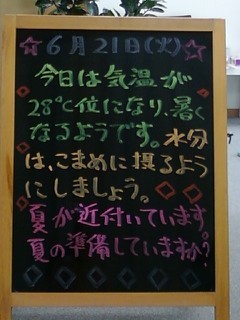 ☆6月21日(火)☆
今日は気温が
28℃位になり、暑く
なるようです。水分
は、こまめに摂るよう
にしましょう。
夏が近付いています。
夏の準備していますか?